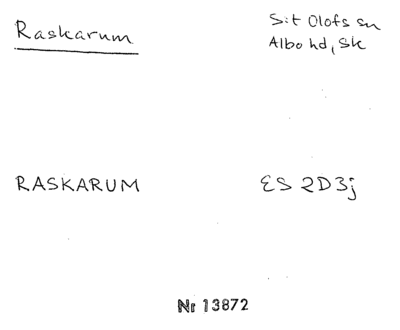 Raskarum
S:t Olofs sn
Albo hd, Sk
RASKARUM
ES 2D3j
Nr 13872